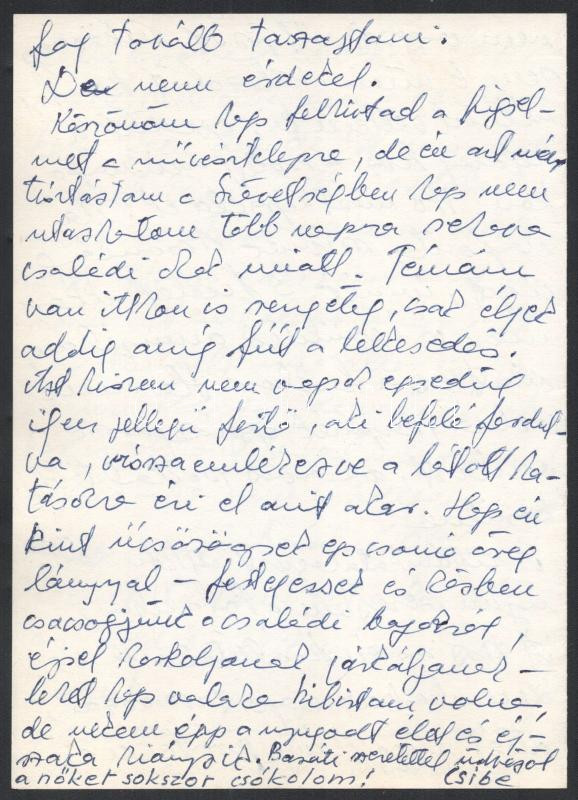 fog tovább taszajtani.
De nem érdekel.
Köszönöm hogy felhívtad a figyel-
met a művésztelepre, de én azt már
tisztáztam a Szövetségben hogy nem
utazhatom több napra sehova
családi okok miatt. Témám
van itthon is rengeteg, csak éljek
addig amíg fűt a lelkesedés.
Azt hiszem nem vagyok egyedüli
ilyen jellegű festő, aki befelé fordul-
va, visszaemlékezve a látott ha-
tásokra éri el amit akar. Hogy én
kint ücsörögjek egy csomó öreg
lánnyal – festegessek és közben
csacsogjunk a családi bajokról,
éjjel horkoljanak járkáljanak –
lehet hogy valaha kibírtam volna,
de nekem épp a nyugodt élet és éj-
szaka hiányzik. Baráti szeretettel üdvözöl
a nőket sokszor csókolom! Csibe